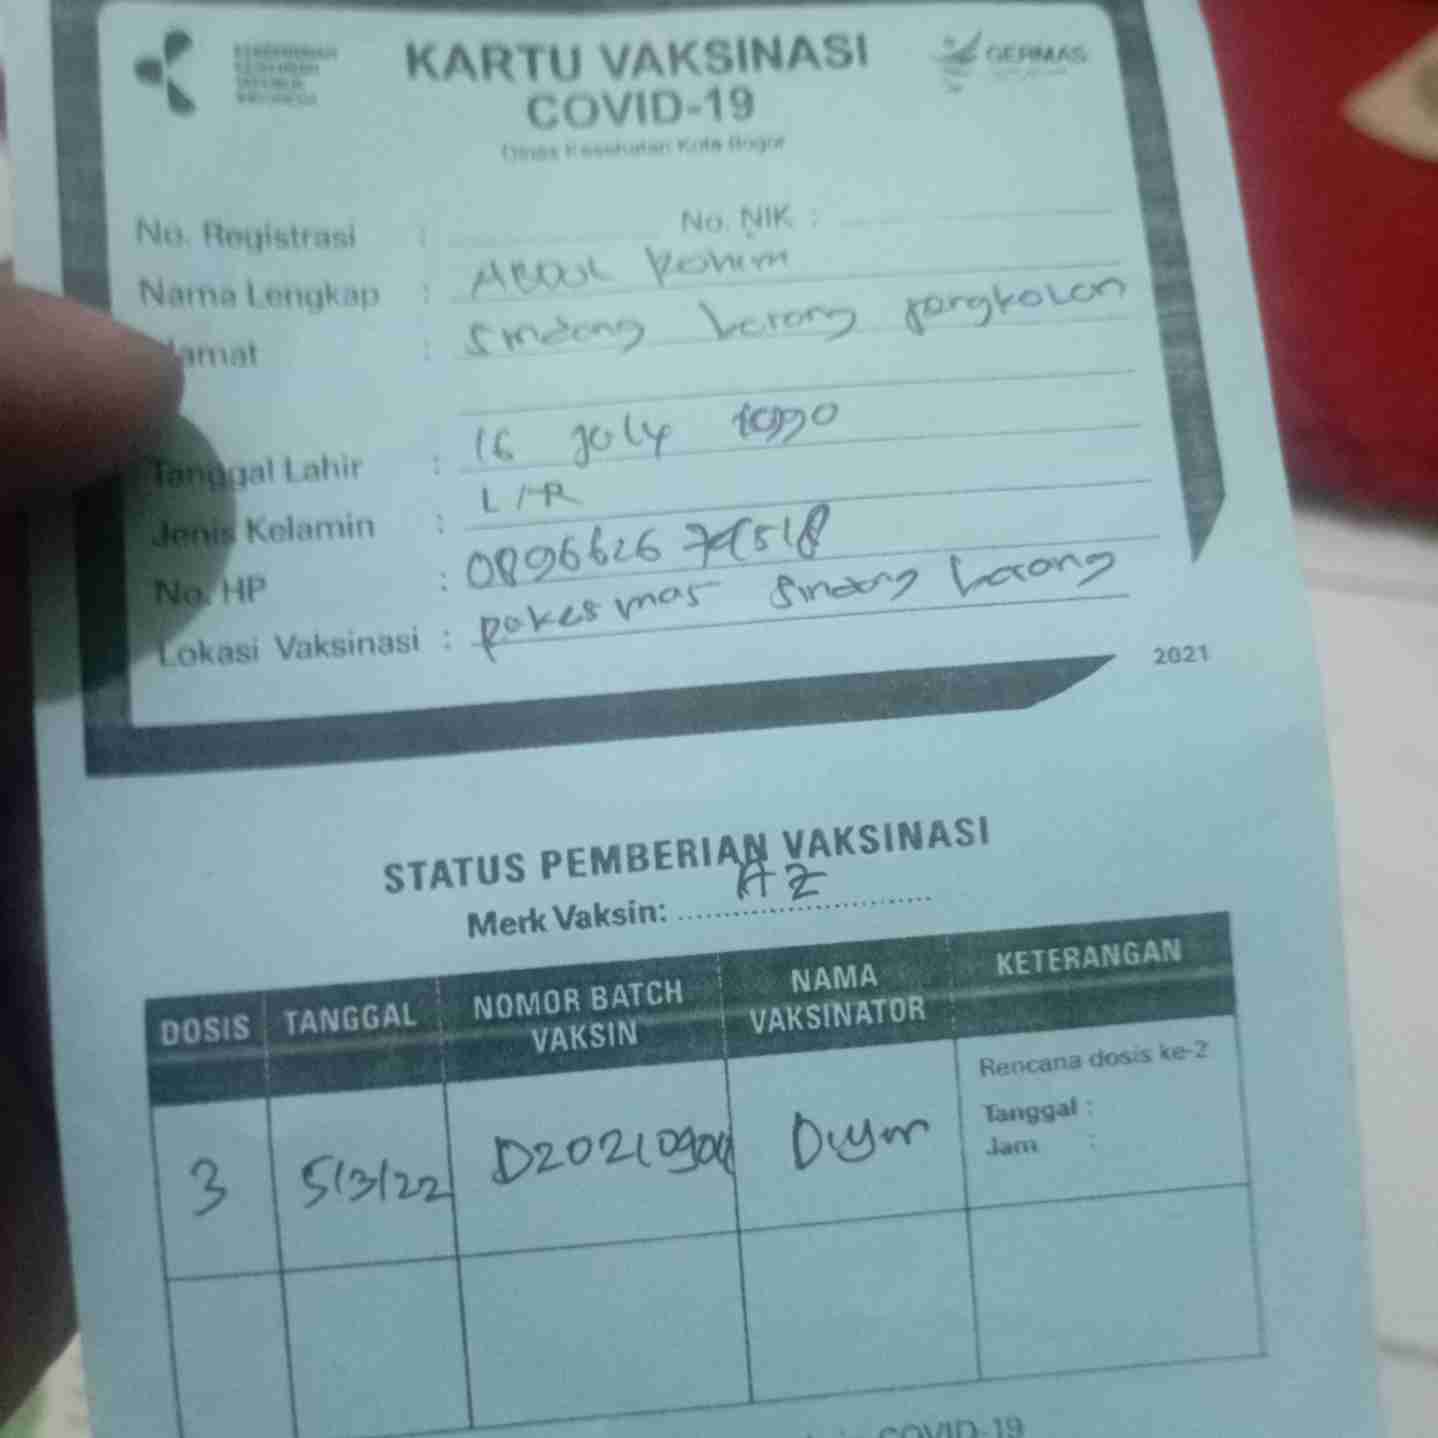 KEMENTERIAN KESEHATAN REPUBLIK INDONESIA
GERMAS
KARTU VAKSINASI
COVID-19
Dinas Kesehatan Kota Bogor
No. Registrasi : No. NIK :
Nama Lengkap : ABDUL Rohim
lamat : Sindang barang pangkolan
Tanggal Lahir : 16 July 1990
Jenis Kelamin : L / P
No. HP : 0896626
Lokasi Vaksinasi : pokesmas Sindang barang
2021
STATUS PEMBERIAN VAKSINASI
Merk Vaksin: AZ
DOSIS TANGGAL NOMOR BATCH VAKSIN NAMA VAKSINATOR KETERANGAN
3 5/3/22
Rencana dosis ke-2
Tanggal :
Jam :
COVID-19